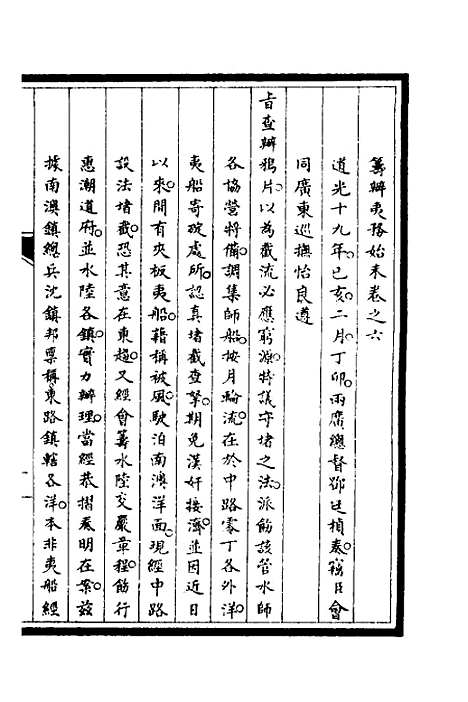 籌辦夷務始末卷之六
道光十九年己亥二月丁卯兩廣總督鄧廷楨奏竊臣會
同廣東巡撫怡良遵
旨查辦鴉片以為截流必應窮源特議守堵之法派飭該管水師
各協營將備調集師船按月輪流在於中路零丁各外洋
夷船寄碇處所認真堵截查拏期免漢奸接濟並因近日
以來間有夾板夷船藉稱被風駛泊南澳洋面現經中路
設法堵截恐其意在東趨又經會籌水陸交嚴章程飭行
惠潮道府並水陸各鎮實力辦理當經恭摺奏明在案茲
據南澳鎮總兵沈鎮邦稟稱東路鎮轄各洋本非夷船經